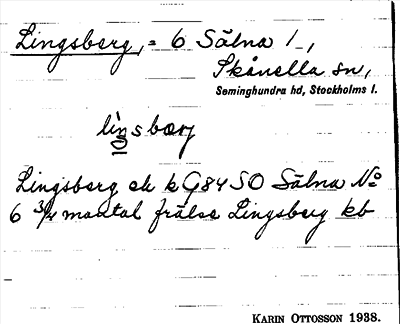 Lingsberg, = 6 Sälna 1,
Skånella sn,
Seminghundra hd, Stockholms l.
lingsbærj
Lingsberg ek k G84 SO Sälna No
6 3/4 mantal frälse Lingsberg kb
KARIN OTTOSSON 1938.